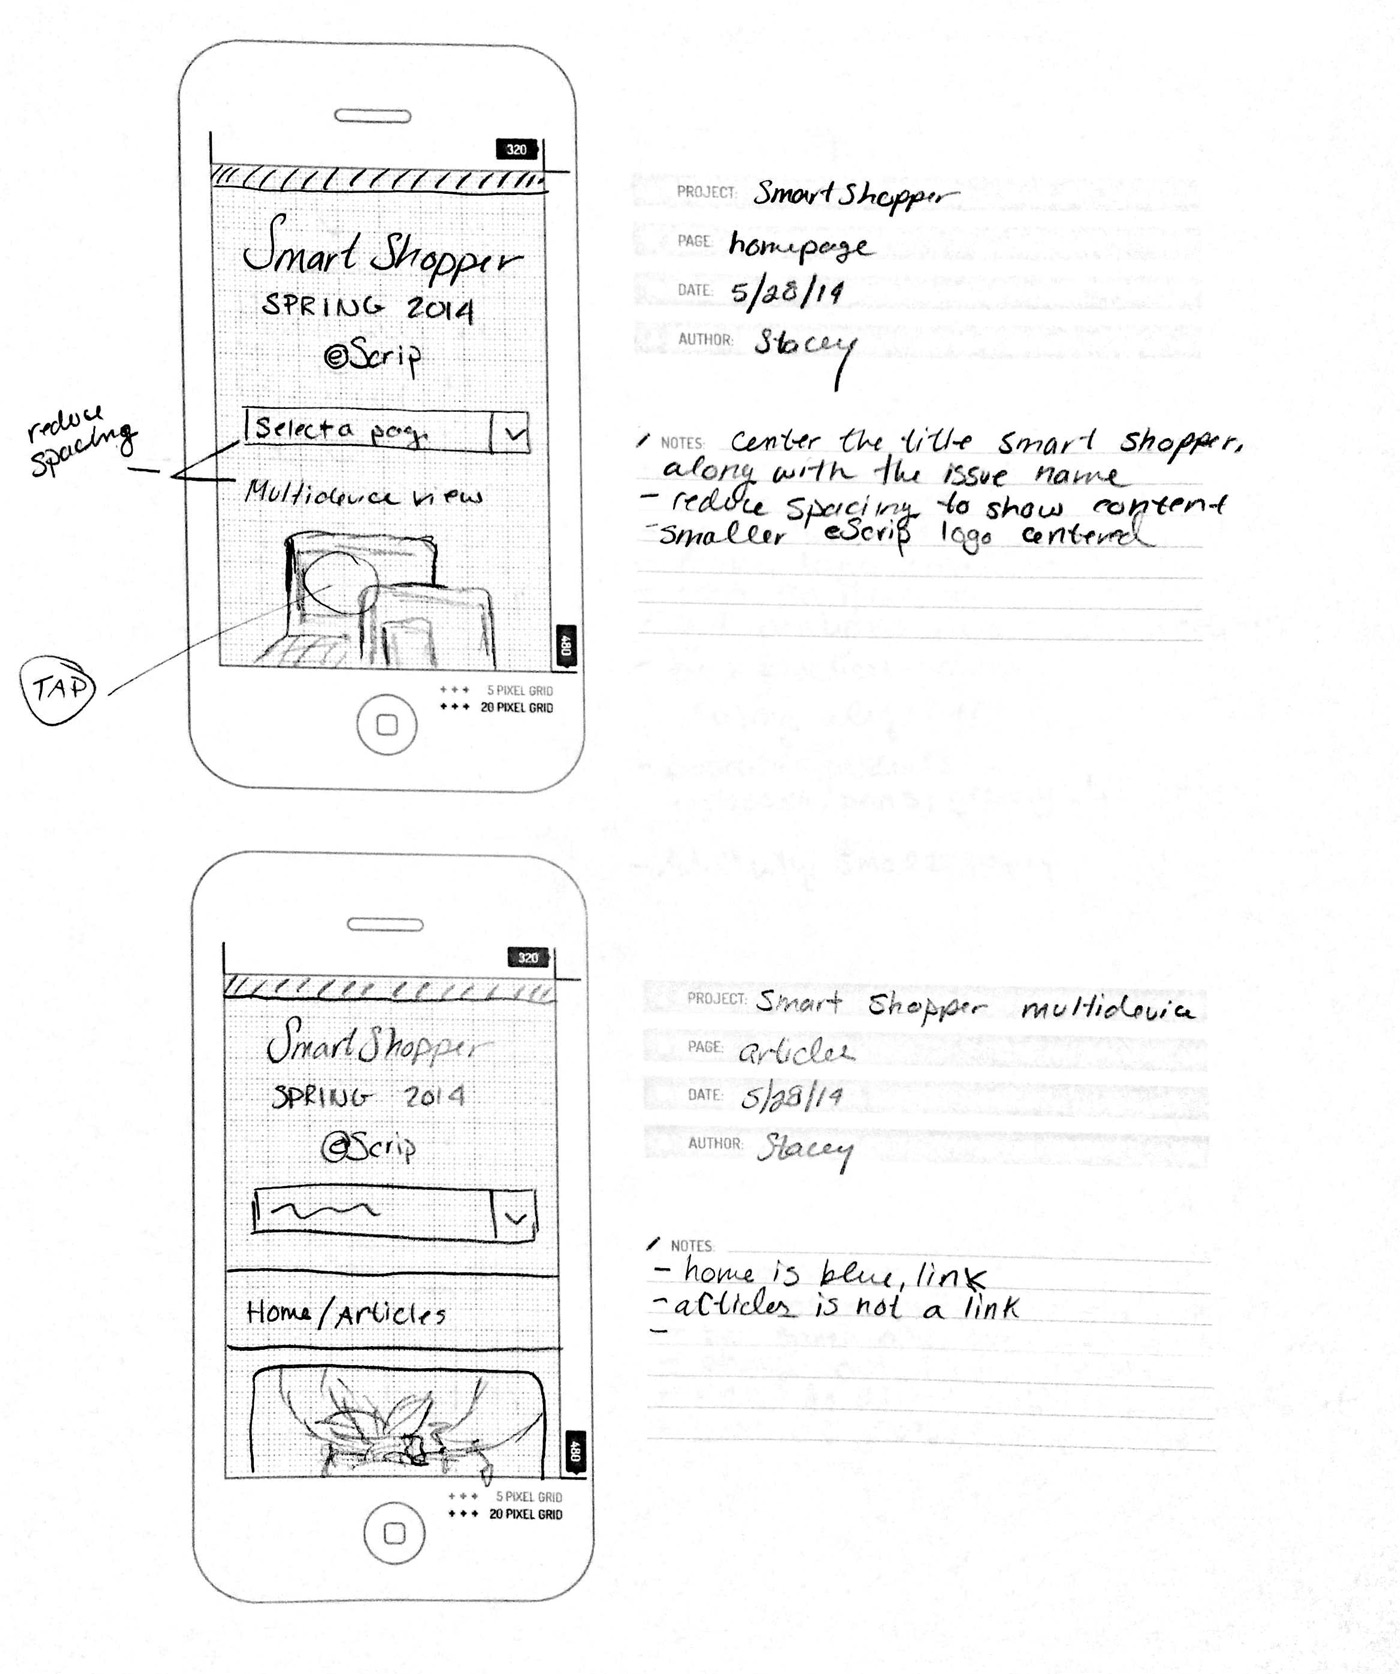 320
Smart Shopper
SPRING 2014
eScrip
Select a page
reduce
spacing
Multidevice view
TAP
480
+++ 5 PIXEL GRID
+++ 20 PIXEL GRID
PROJECT: Smart Shopper
PAGE: homepage
DATE: 5/28/14
AUTHOR: Stacey
NOTES: center the title smart shopper,
along with the issue name
- reduce spacing to show content
- smaller eScrip logo centered
320
Smart Shopper
SPRING 2014
eScrip
Home/Articles
480
+++ 5 PIXEL GRID
+++ 20 PIXEL GRID
PROJECT: Smart Shopper multidevice
PAGE: articles
DATE: 5/28/14
AUTHOR: Stacey
NOTES:
- home is blue, link
- articles is not a link
-